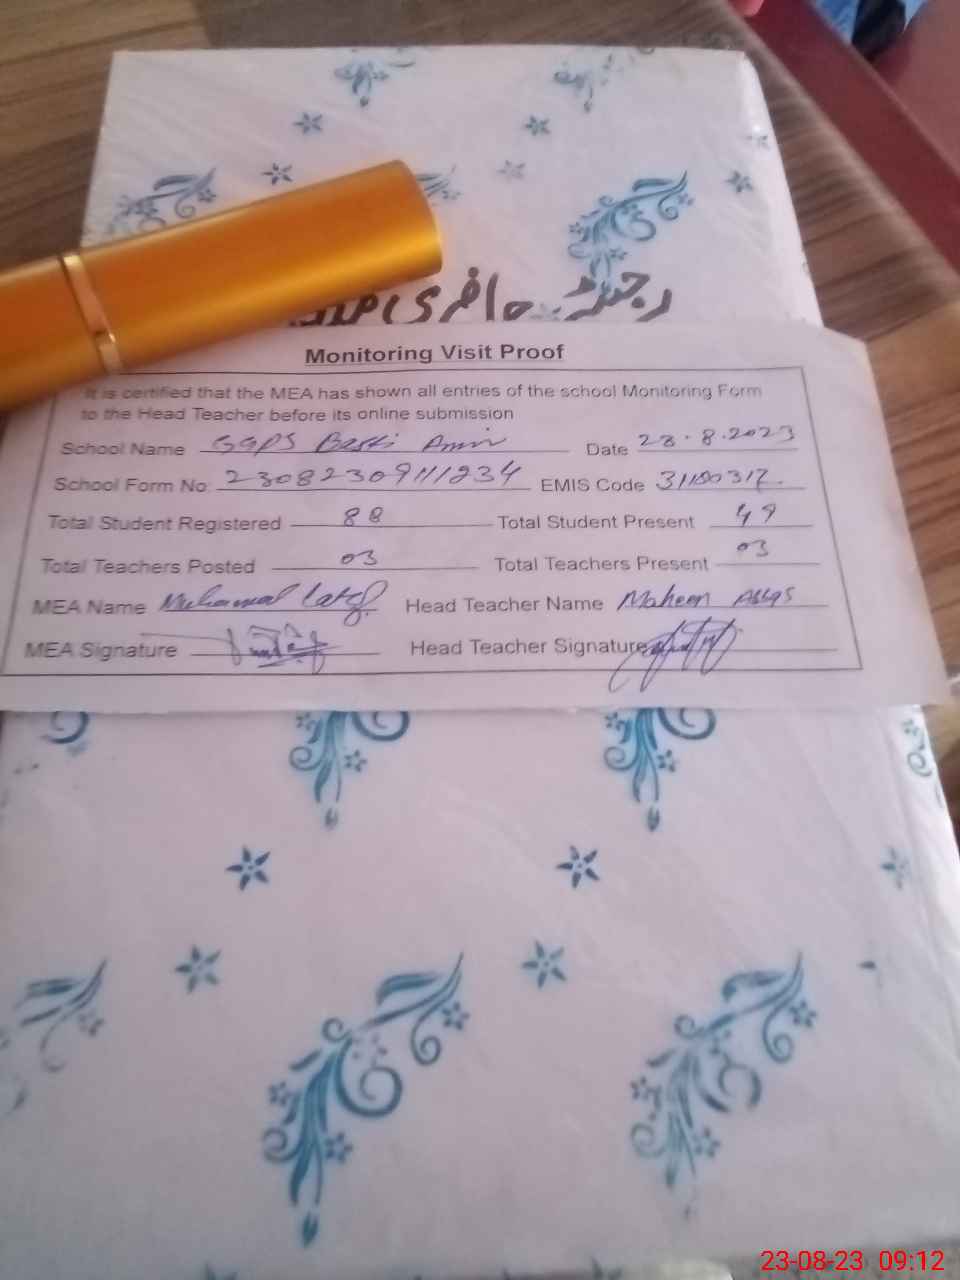 رجسٹر حاضری
Monitoring Visit Proof
It is certified that the MEA has shown all entries of the school Monitoring Form
to the Head Teacher before its online submission
School Name GGPS Basti Amir Date 23.8.2023
School Form No: 23082309111234 EMIS Code 31180317
Total Student Registered 88 Total Student Present 49
Total Teachers Posted 03 Total Teachers Present 03
MEA Name Muhammad Latif Head Teacher Name Maheen Abbas
MEA Signature Head Teacher Signature
23-08-23 09:12